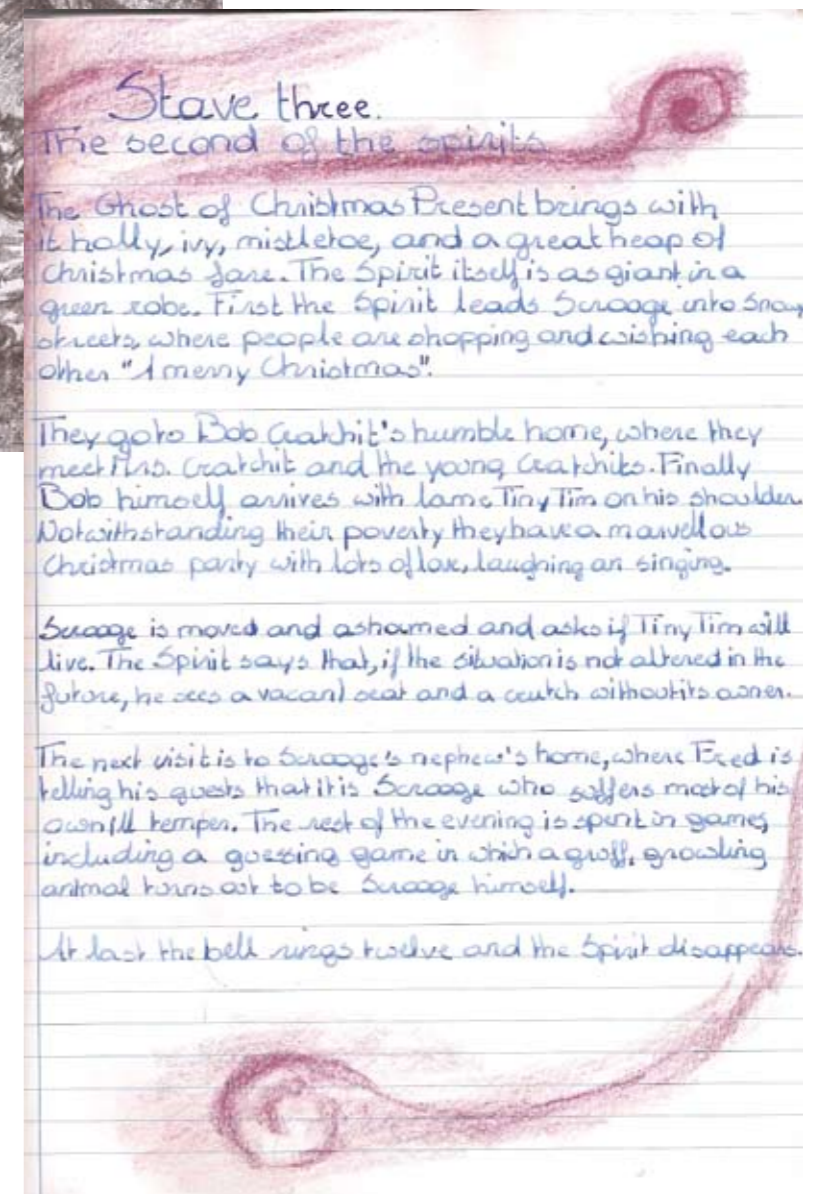 Stave three.
The second of the spirits
The Ghost of Christmas Present brings with
it holly, ivy, mistletoe, and a great heap of
Christmas fare. The Spirit itself is as giant in a
green robe. First the Spirit leads Scrooge into Snowy
streets, where people are shopping and wishing each
other "A merry Christmas".
They go to Bob Cratchit's humble home, where they
meet Mrs. Cratchit and the young Cratchits. Finally
Bob himself arrives with lame Tiny Tim on his shoulder.
Notwithstanding their poverty they have a marvellous
Christmas party with lots of love, laughing an singing.
Scrooge is moved and ashamed and asks if Tiny Tim will
live. The Spirit says that, if the situation is not altered in the
future, he sees a vacant seat and a crutch without its owner.
The next visit is to Scrooge's nephew's home, where Fred is
telling his guests that it is Scrooge who suffers most of his
own ill temper. The rest of the evening is spent in games,
including a guessing game in which a gruff, growling
animal turns out to be Scrooge himself.
At last the bell rings twelve and the Spirit disappears.